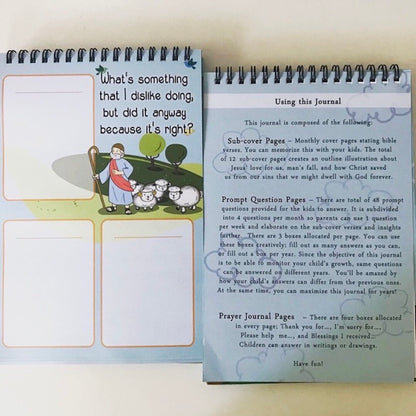 What's something
that I dislike doing,
but did it anyway
because it's right?
Using this Journal
This journal is composed of the following:
Sub-cover Pages – Monthly cover pages stating bible
verses. You can memorize this with your kids. The total
of 12 sub-cover pages creates an outline illustration about
Jesus' love for us, man's fall, and how Christ saved
us from our sins that we might dwell with God forever.
Prompt Question Pages – There are total of 48 prompt
questions provided for the kids to answer. It is subdivided
into 4 questions per month so parents can use 1 question
per week and elaborate on the sub-cover verses and insights
further. There are 3 boxes allocated per page. You can use
these boxes creatively; fill out as many answers as you can,
or fill out a box per year. Since the objective of this journal
is to be able to monitor your child's growth, same questions
can be answered on different years. You'll be amazed by
how your child's answers can differ from the previous ones.
At the same time, you can maximize this journal for years!
Prayer Journal Pages – There are four boxes allocated
in every page; Thank you for..., I'm sorry for...
Please help me..., and Blessings I received...
Children can answer in writings or drawings.
Have fun!